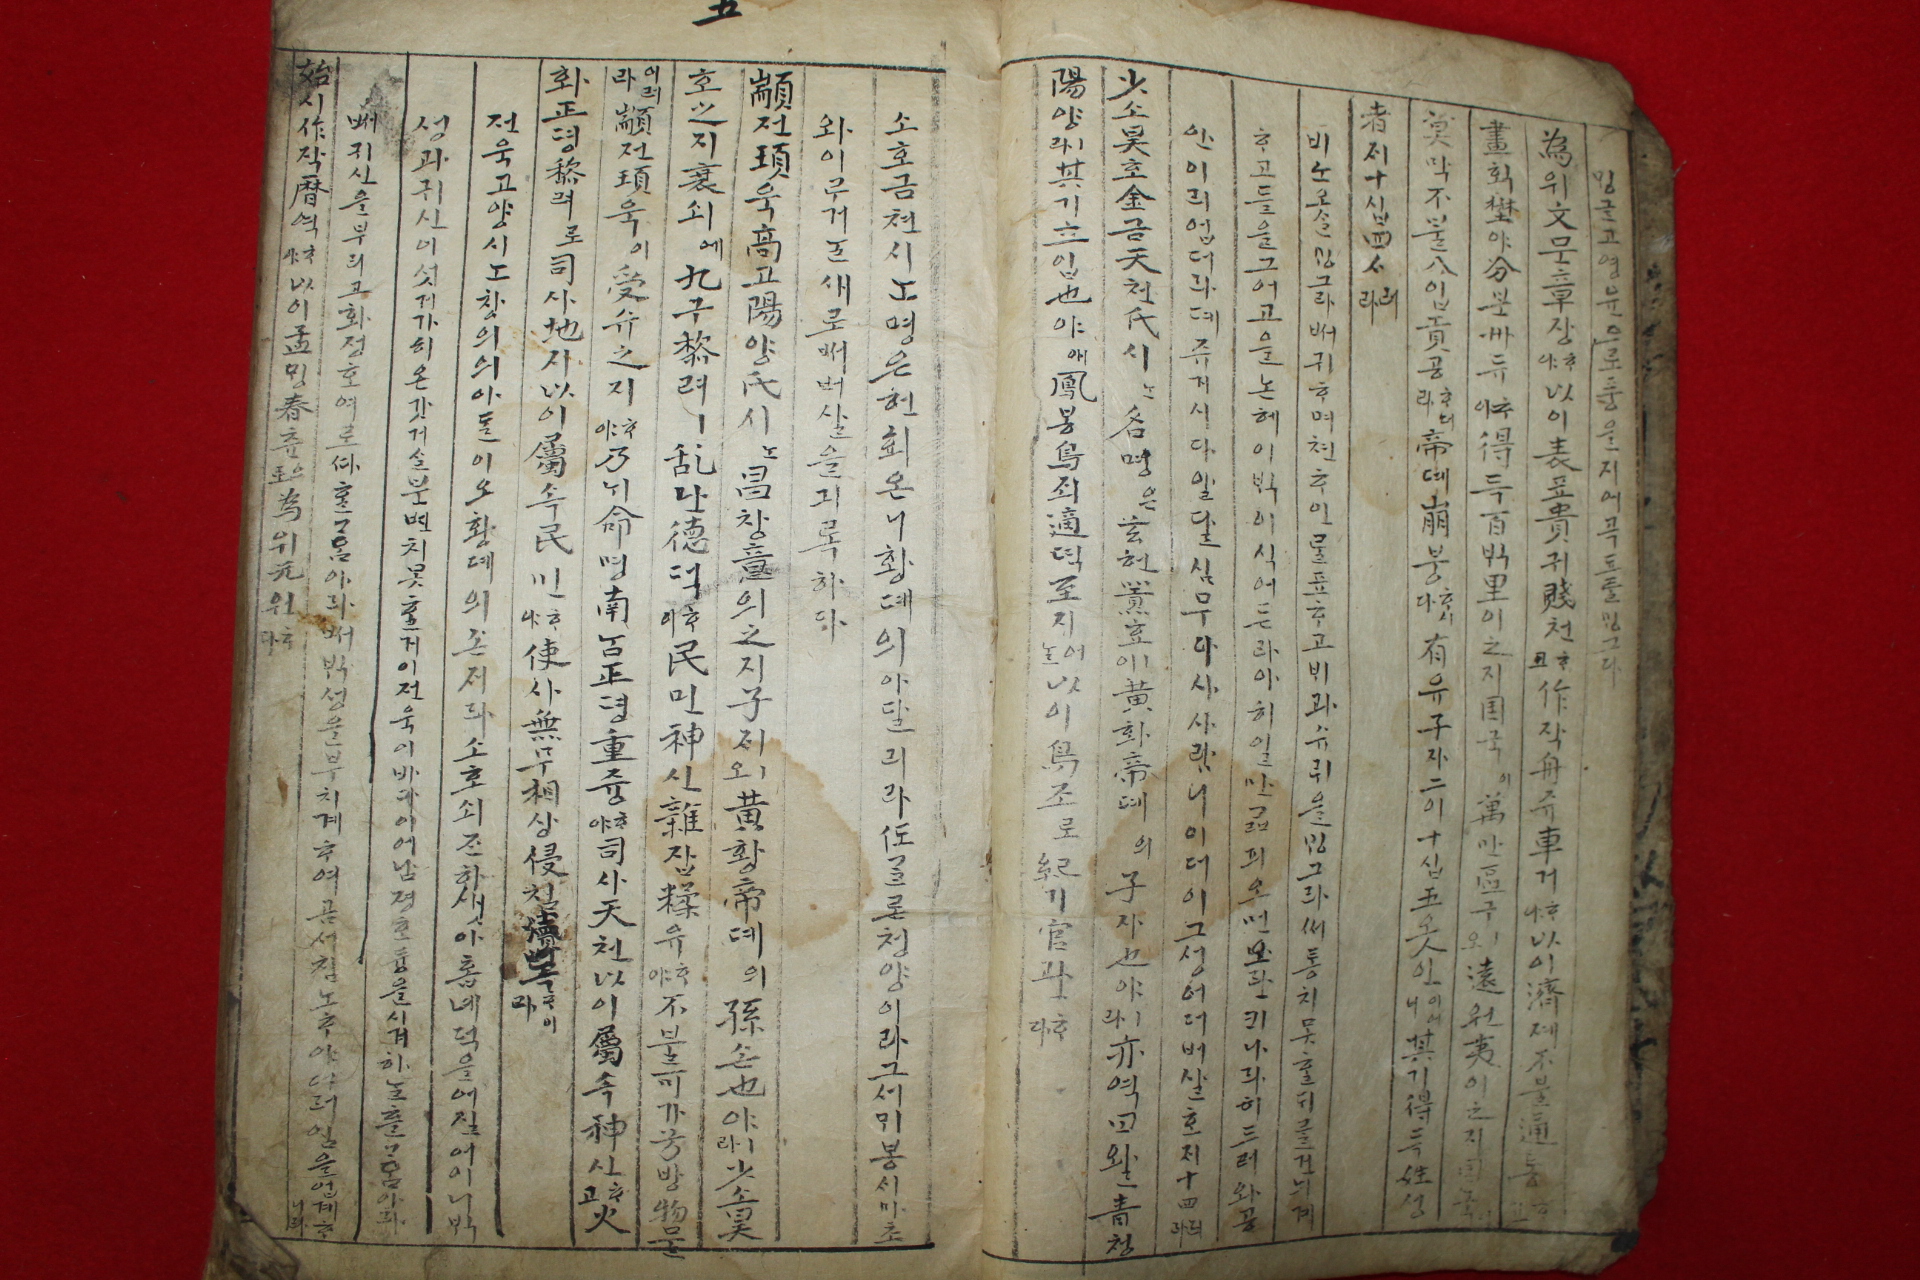 밍글고영뉸으로츙을지여륙됴를밍그다
為위文문章쟝ᄒᆞ야以이表표貴귀賤쳔ᄒᆞ고作작舟쥬車거ᄒᆞ야以이濟졔不불通통ᄒᆞ고
畫획壄야分분州듀ᄒᆞ야得득百ᄇᆡᆨ里이之지囯국이萬만區구오ㅣ遠원夷이之지囯국
莫막不불入입貢공ᄒᆞ더라帝뎨崩붕ᄒᆞ시다有유子ᄌᆞ二이十십五오人인이러니其기得득姓셩
者져十십四ᄉᆞ러라
비노옷슬밍그라ᄡᅥ귀ᄒᆞ며쳔ᄒᆞ인믈표ᄒᆞ고비과슈뤼을밍그라써통치못ᄒᆞᆯ듸를건늬계
ᄒᆞ고들을그어고을논혜이ᄇᆡᆨ이식어든라아히일만곱픠오먼보란킈나라히드러와공
안이리업더라뎨쥬거시다일달심무다ᄉᆞ사람니이더이그셩어더버살호지十四러라
少소昊호金금天쳔氏시ᄂᆞᆫ名명은玄현囂효이ㅣ黃화帝뎨의子자也야라ㅣ亦역曰왈靑쳥
陽양라ㅣ其기立입也야애鳳봉鳥죄適뎍至지어ᄂᆞᆯ以이鳥조로紀기官관ᄒᆞ다
소호금쳔시ᄂᆞᆫ명은현회온니황뎨의아달리라ᄯᅩ글론쳥양이라그셰뮈봉시마초
와이루거ᄂᆞᆯ새로ᄡᅥ벼살을긔록하다
顓젼頊욱高고陽양氏시ᄂᆞᆫ昌창意의之지子ᄌᆡ오ㅣ黃황帝뎨의孫손也야라ㅣ少소昊
호之지衰쇠에九구黎려ㅣ乱난德덕ᄒᆞ야民민神신雜잡糅유ᄒᆞ야不불可가方방物물
이러라顓젼頊욱이受슈之지ᄒᆞ야乃늬命명南남正졍重즁ᄒᆞ야司사天쳔以이屬쇽神신ᄒᆞ고火
화正졍黎려로司사地지以이屬쇽民민ᄒᆞ야使사無무相상侵침瀆독ᄒᆞ이라
젼욱고양시ᄂᆞᆫ창의의아ᄃᆞᆯ이오황뎨의ᄌᆞᆫ저라소호쇠ᄌᆞᆫ하새아홉녜덕을에질어이니ᄇᆡᆨ
셩과귀신이섯겨가히온갓거슬분변치못ᄒᆞᆯ거이젼욱이바다이어남졍ᄒᆞᆫ즁을시겨하ᄂᆞᆯᄒᆞᆯᄀᆞ옴아라
ᄡᅥ귀신을부리고화졍호여로ᄯᅡᄒᆞᆯᄀᆞ옴아라ᄡᅥᄇᆡᆨ셩을부치계ᄒᆞ여곰셔침노ᄒᆞ야더러임을업계ᄒᆞ니라
始시作작曆역ᄒᆞ야以이孟밍春츈으로為위元원ᄒᆞ다